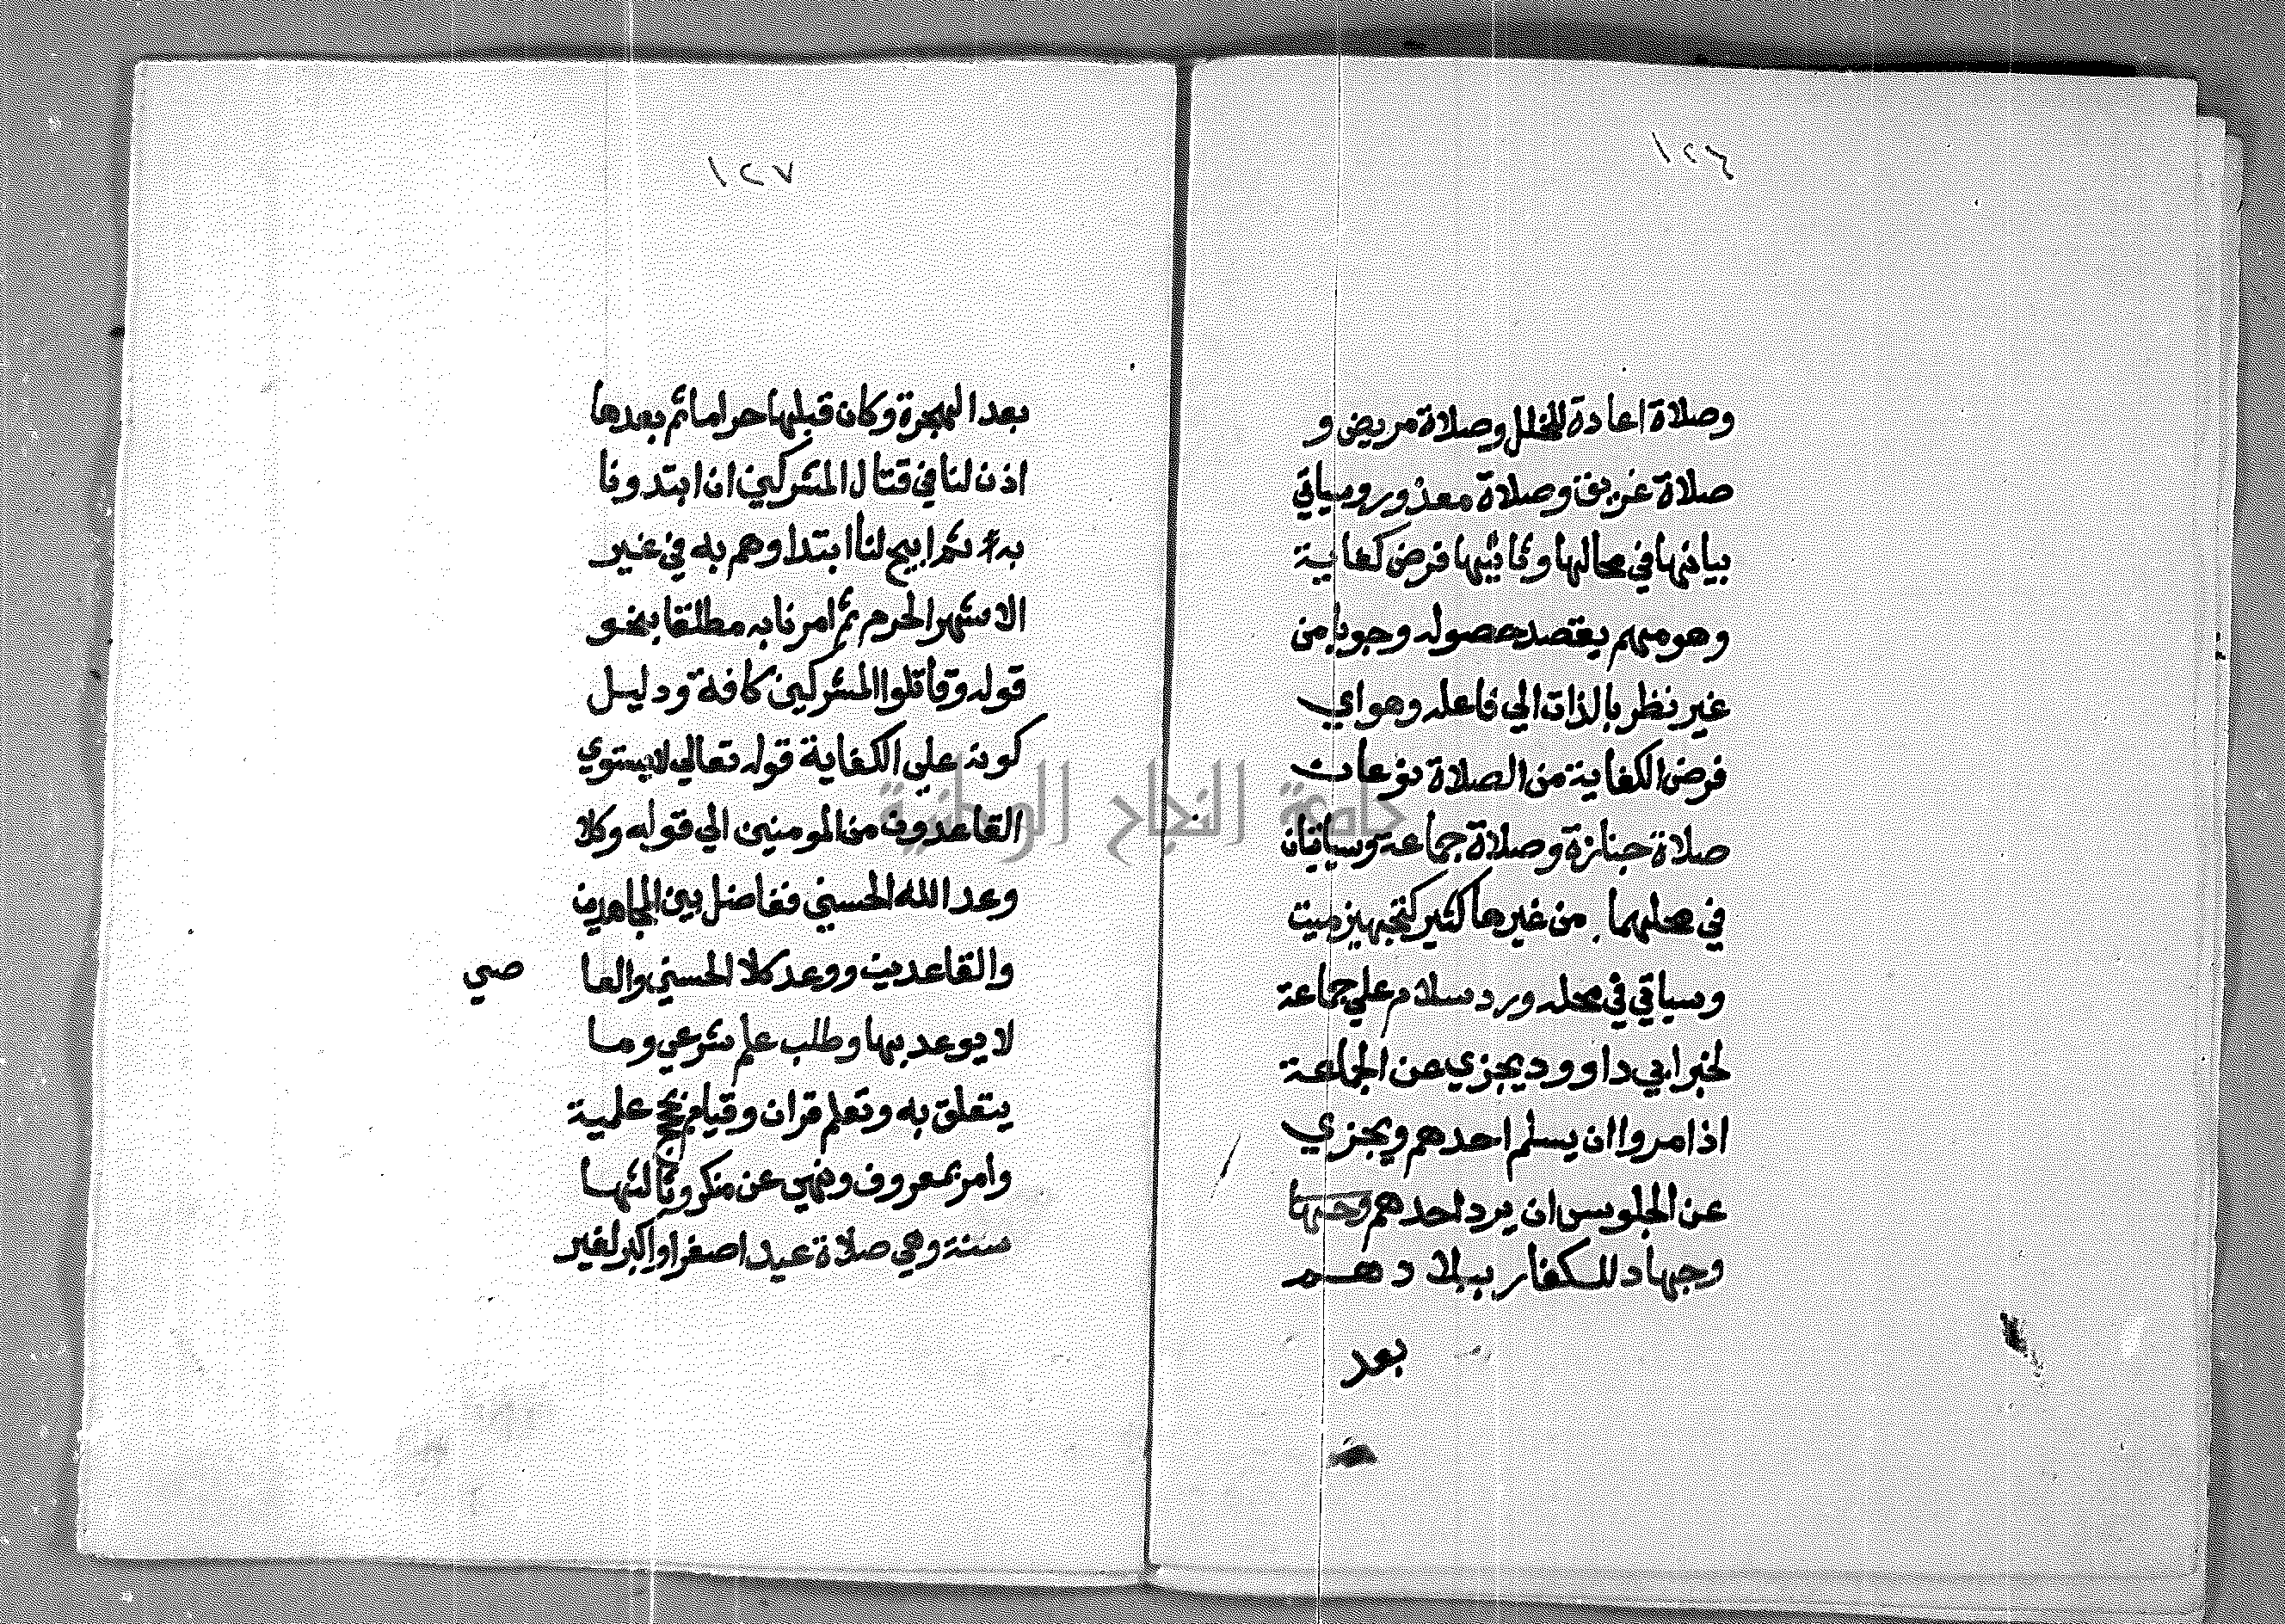 ١٢٦
وصلاة اعادة للخلل وصلاة مريض و
صلاة غريق وصلاة معذور وسياتي
بيانها في محالها وثانيها فرض كفاية
وهو مهم يقصد حصوله وجوبا من
غير نظر بالذات الي فاعله وهو اي
فرض الكفاية من الصلاة نوعان
صلاة جنازة وصلاة جماعة وسياتيان
في محلهما من غيرها كثير كتجهيز ميت
وسياتي في محله ورد سلام علي جماعة
لخبر ابي داوود يجزي عن الجماعة
اذا مروا ان يسلم احدهم ويجزي
عن الجلوس ان يرد احدهم
وجهاد للكفار ببلادهم
بعد
١٢٧
بعد الهجرة وكان قبلها حراما ثم بعدها
اذن لنا في قتال المشركين ان ابتدونا
به ثم ابيح لنا ابتداوهم به في غير
الاشهر الحرم ثم امرنا به مطلقا بنحو
قوله وقاتلوا المشركين كافة ودليل
كونه علي الكفاية قوله تعالي لا يستوي
القاعدون من المومنين الي قوله وكلا
وعد الله الحسني ففاضل بين المجاهدين
والقاعدين ووعد كلا الحسني والعا
صي
لا يوعد بها وطلب علم شرعي وما
يتعلق به وتعلم قران وقيام بحج علمية
وامر بمعروف ونهي عن منكر وثالثها
سنة وهي صلاة عيد اصغر او اكبر لغير
جامعة النجاح الوطنية